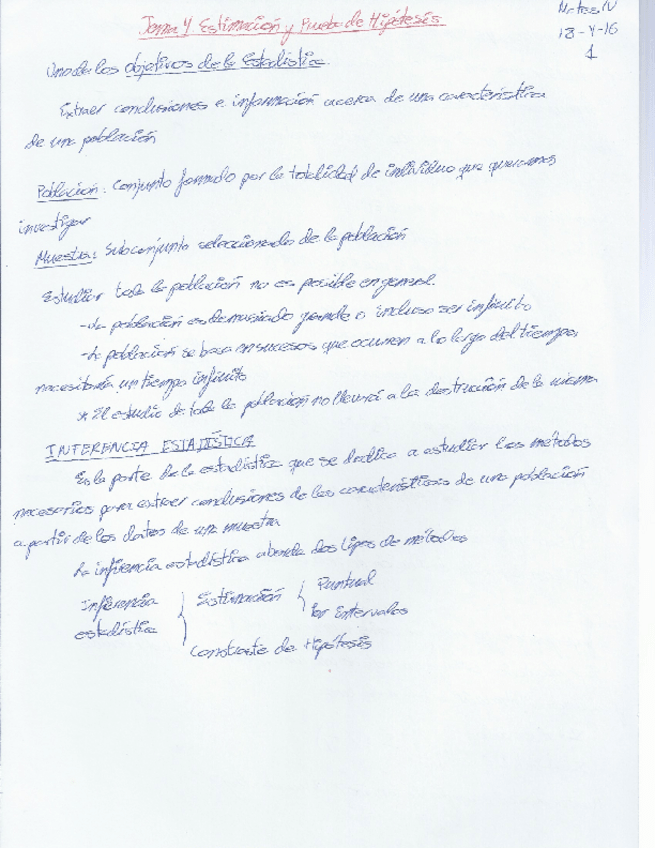 Mates IV
18-4-16
1
Tema 4 Estimación y Prueba de Hipótesis
Uno de los objetivos de la Estadística.
Extraer conclusiones e información acerca de una característica
de una población
Población: Conjunto formado por la totalidad de individuo que queremos
investigar
Muestra: Subconjunto seleccionado de la población
Estudiar toda la población no es posible en general.
-La población es demasiado grande o incluso ser infinito
-La población se basa en sucesos que ocurren a lo largo del tiempo,
necesitaría un tiempo infinito
* El estudio de toda la población no llevará a la destrucción de la misma
INTERENCIA ESTADÍSTICA
Es la parte de la estadística que se dedica a estudiar los métodos
necesarios para extraer conclusiones de las características de una población
a partir de los datos de una muestra
La inferencia estadística aborda dos tipos de métodos
Inferencia
estadística
Estimación
Puntual
Por Intervalos
Constraste de Hipótesis